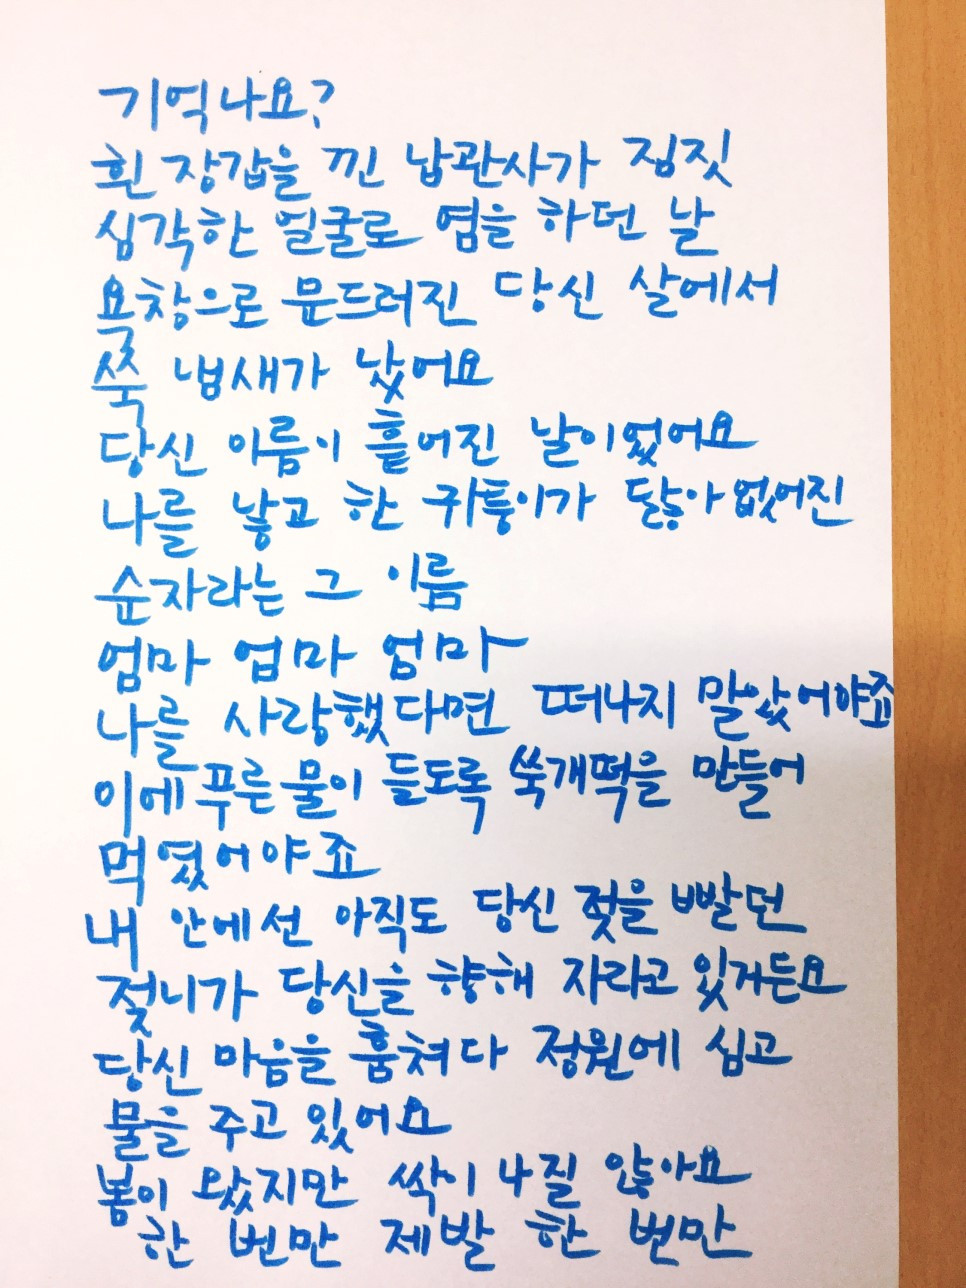 기억나요?
흰 장갑을 낀 납관사가 짐짓
심각한 얼굴로 염을 하던 날
욕창으로 문드러진 당신 살에서
쑥 냄새가 났어요
당신 이름이 흩어진 날이었어요
나를 낳고 한 귀퉁이가 닳아 없어진
순자라는 그 이름
엄마 엄마 엄마
나를 사랑했다면 떠나지 말았어야죠
이에 푸른 물이 들도록 쑥개떡을 만들어
먹였어야죠
내 안에선 아직도 당신 젖을 빨던
젖니가 당신을 향해 자라고 있거든요
당신 마음을 훔쳐다 정원에 심고
물을 주고 있어요
봄이 왔지만 싹이 나질 않아요
한 번만 제발 한 번만